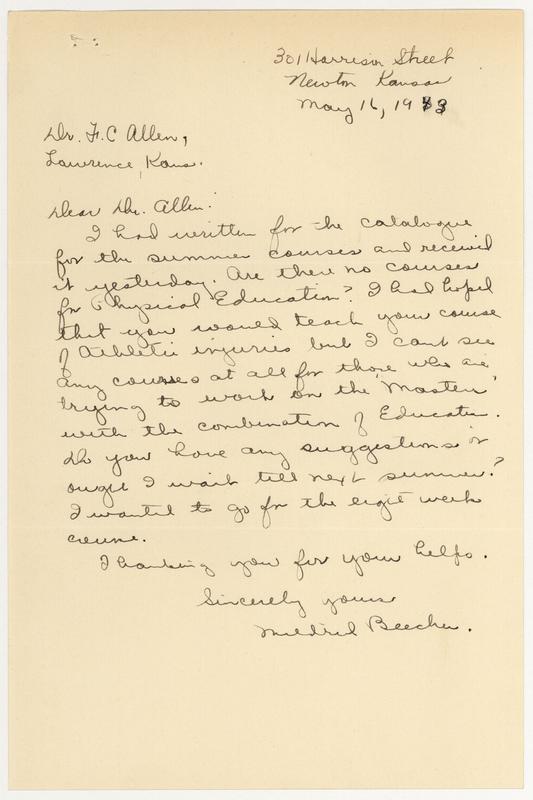 301 Harrison Street
Newton Kansas
May 16, 1943
Dr. F.C Allen,
Lawrence, Kans.
Dear Dr. Allen:
I had written for the catalogue
for the summer courses and received
it yesterday. Are there no courses
for Physical Education? I had hoped
that you would teach your course
of Athletic injuries but I cant see
any courses at all for those who are
trying to work on the "Masters"
with the combination of Education.
Do you have any suggestions or
ought I wait till next summer?
I wanted to go for the eight week
course.
Thanking you for your helps.
Sincerely yours
Mildred Beecher.